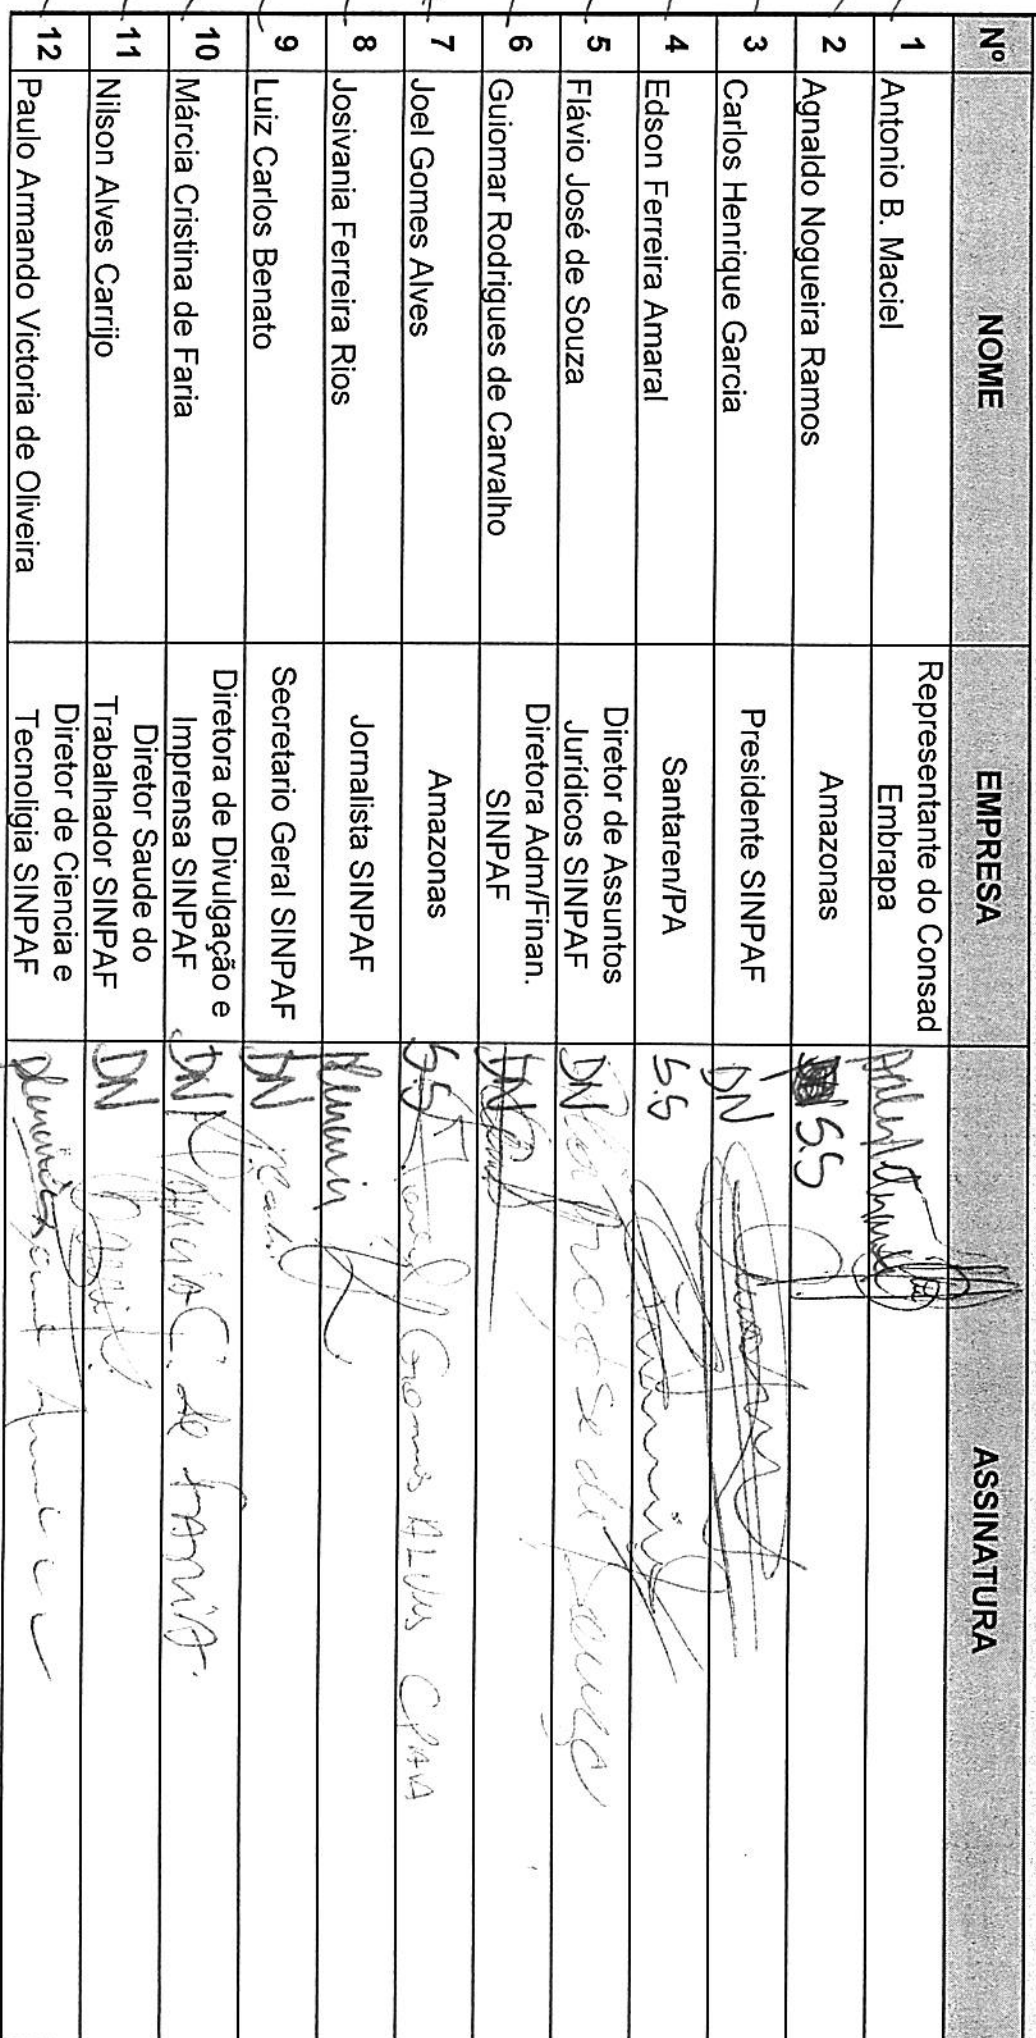 Nº NOME EMPRESA ASSINATURA
1 Antonio B. Maciel Representante do Consad
Embrapa
2 Agnaldo Nogueira Ramos Amazonas S.S
3 Carlos Henrique Garcia Presidente SINPAF DN
4 Edson Ferreira Amaral Santaren/PA S.S
5 Flávio José de Souza Diretor de Assuntos
Jurídicos SINPAF DN
6 Guiomar Rodrigues de Carvalho Diretora Adm/Finan.
SINPAF DN
7 Joel Gomes Alves Amazonas S.S Gomes Alves CPAA
8 Josivania Ferreira Rios Jornalista SINPAF
9 Luiz Carlos Benato Secretario Geral SINPAF DN
10 Márcia Cristina de Faria Diretora de Divulgação e
Imprensa SINPAF DN Márcia C. de Faria.
11 Nilson Alves Carrijo Diretor Saude do
Trabalhador SINPAF DN
12 Paulo Armando Victoria de Oliveira Diretor de Ciencia e
Tecnoligia SINPAF